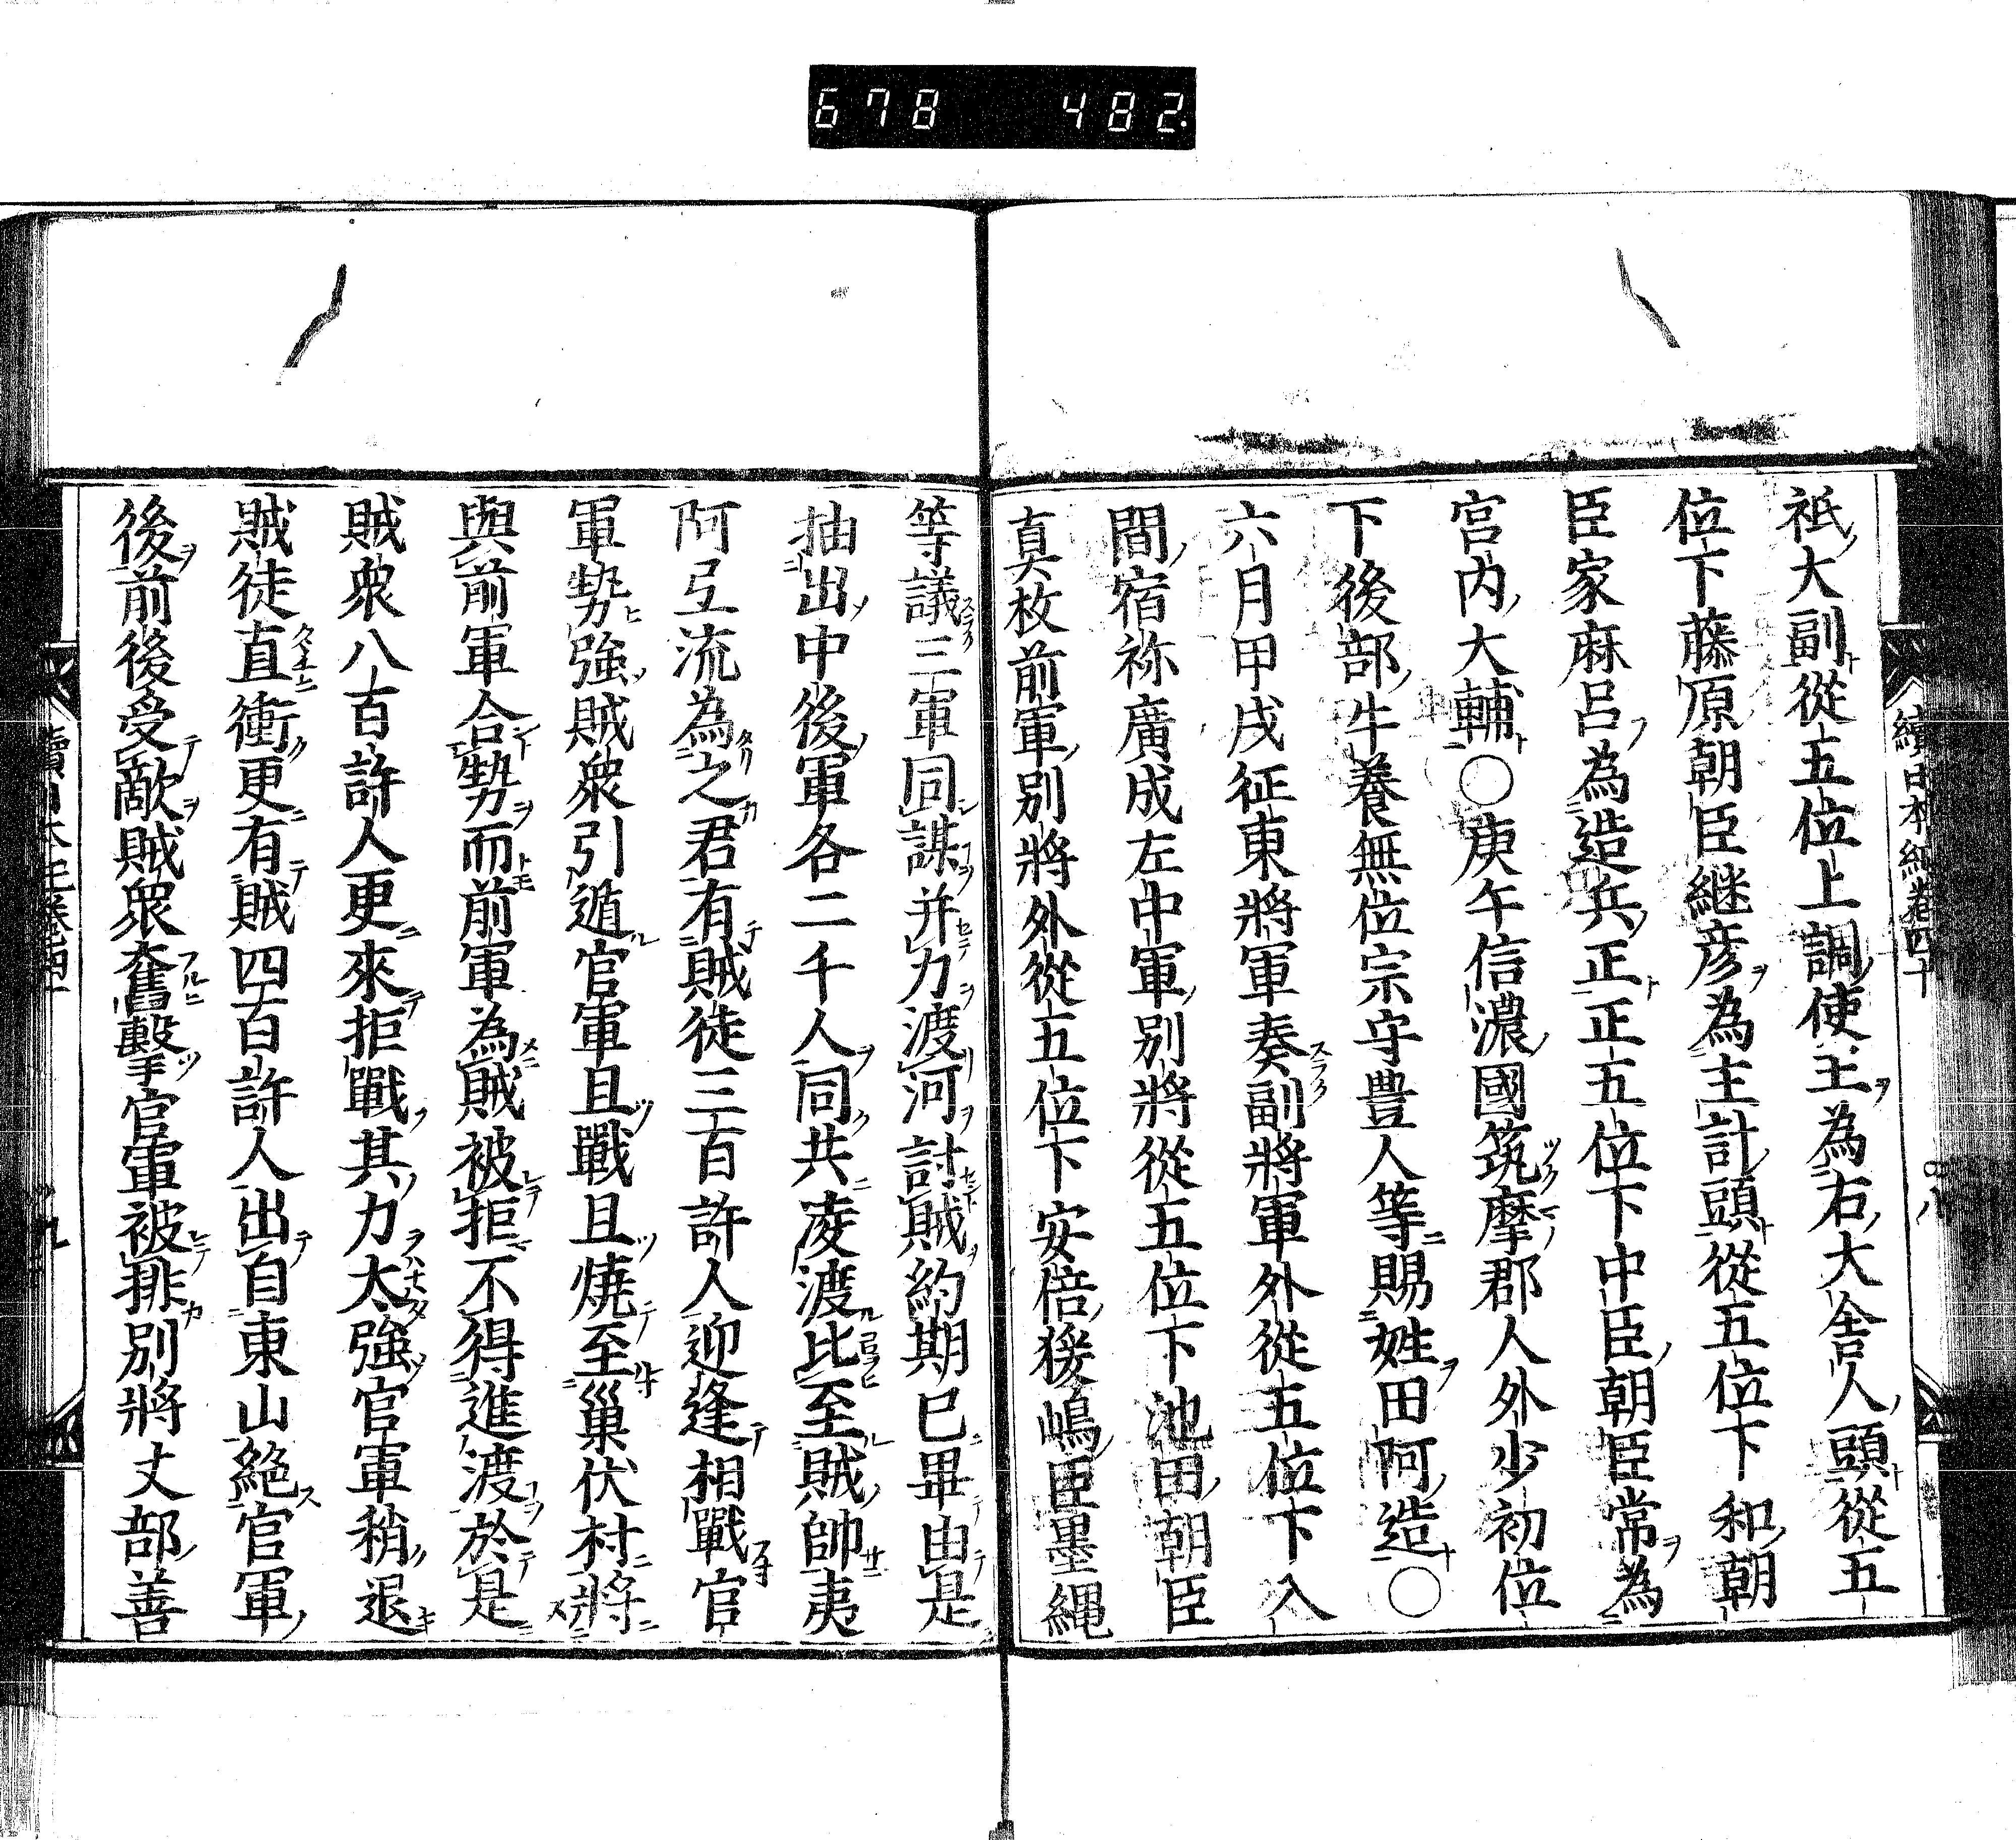 678 482
續日本紀卷四十
祇大副從五位上調使王為右大舎人頭從五
位下藤原朝臣継彦為主計頭從五位下和朝
臣家麻呂為造兵正正五位下中臣朝臣常為
宮内大輔○庚午信濃國筑摩郡人外少初位
下後部牛養無位宗守豊人等賜姓田阿造○
六月甲戌征東將軍奏副將軍外從五位下入
間宿祢廣成左中軍別將從五位下池田朝臣
真枚前軍別將外從五位下安倍猨嶋臣墨縄
等議三軍同謀并力渡河討賊約期已畢由是
抽出中後軍各二千人同共凌渡比至賊帥夷
阿弖流為之君有賊徒三百許人迎逢相戰官
軍勢強賊衆引遁官軍且戰且焼至巢伏村將
與前軍合勢而前軍為賊被拒不得進渡於是
賊衆八百許人更來拒戰其力太強官軍稍退
賊徒直衝更有賊四百許人出自東山絶官軍
後前後受敵賊衆奮擊官軍被排別將丈部善
九